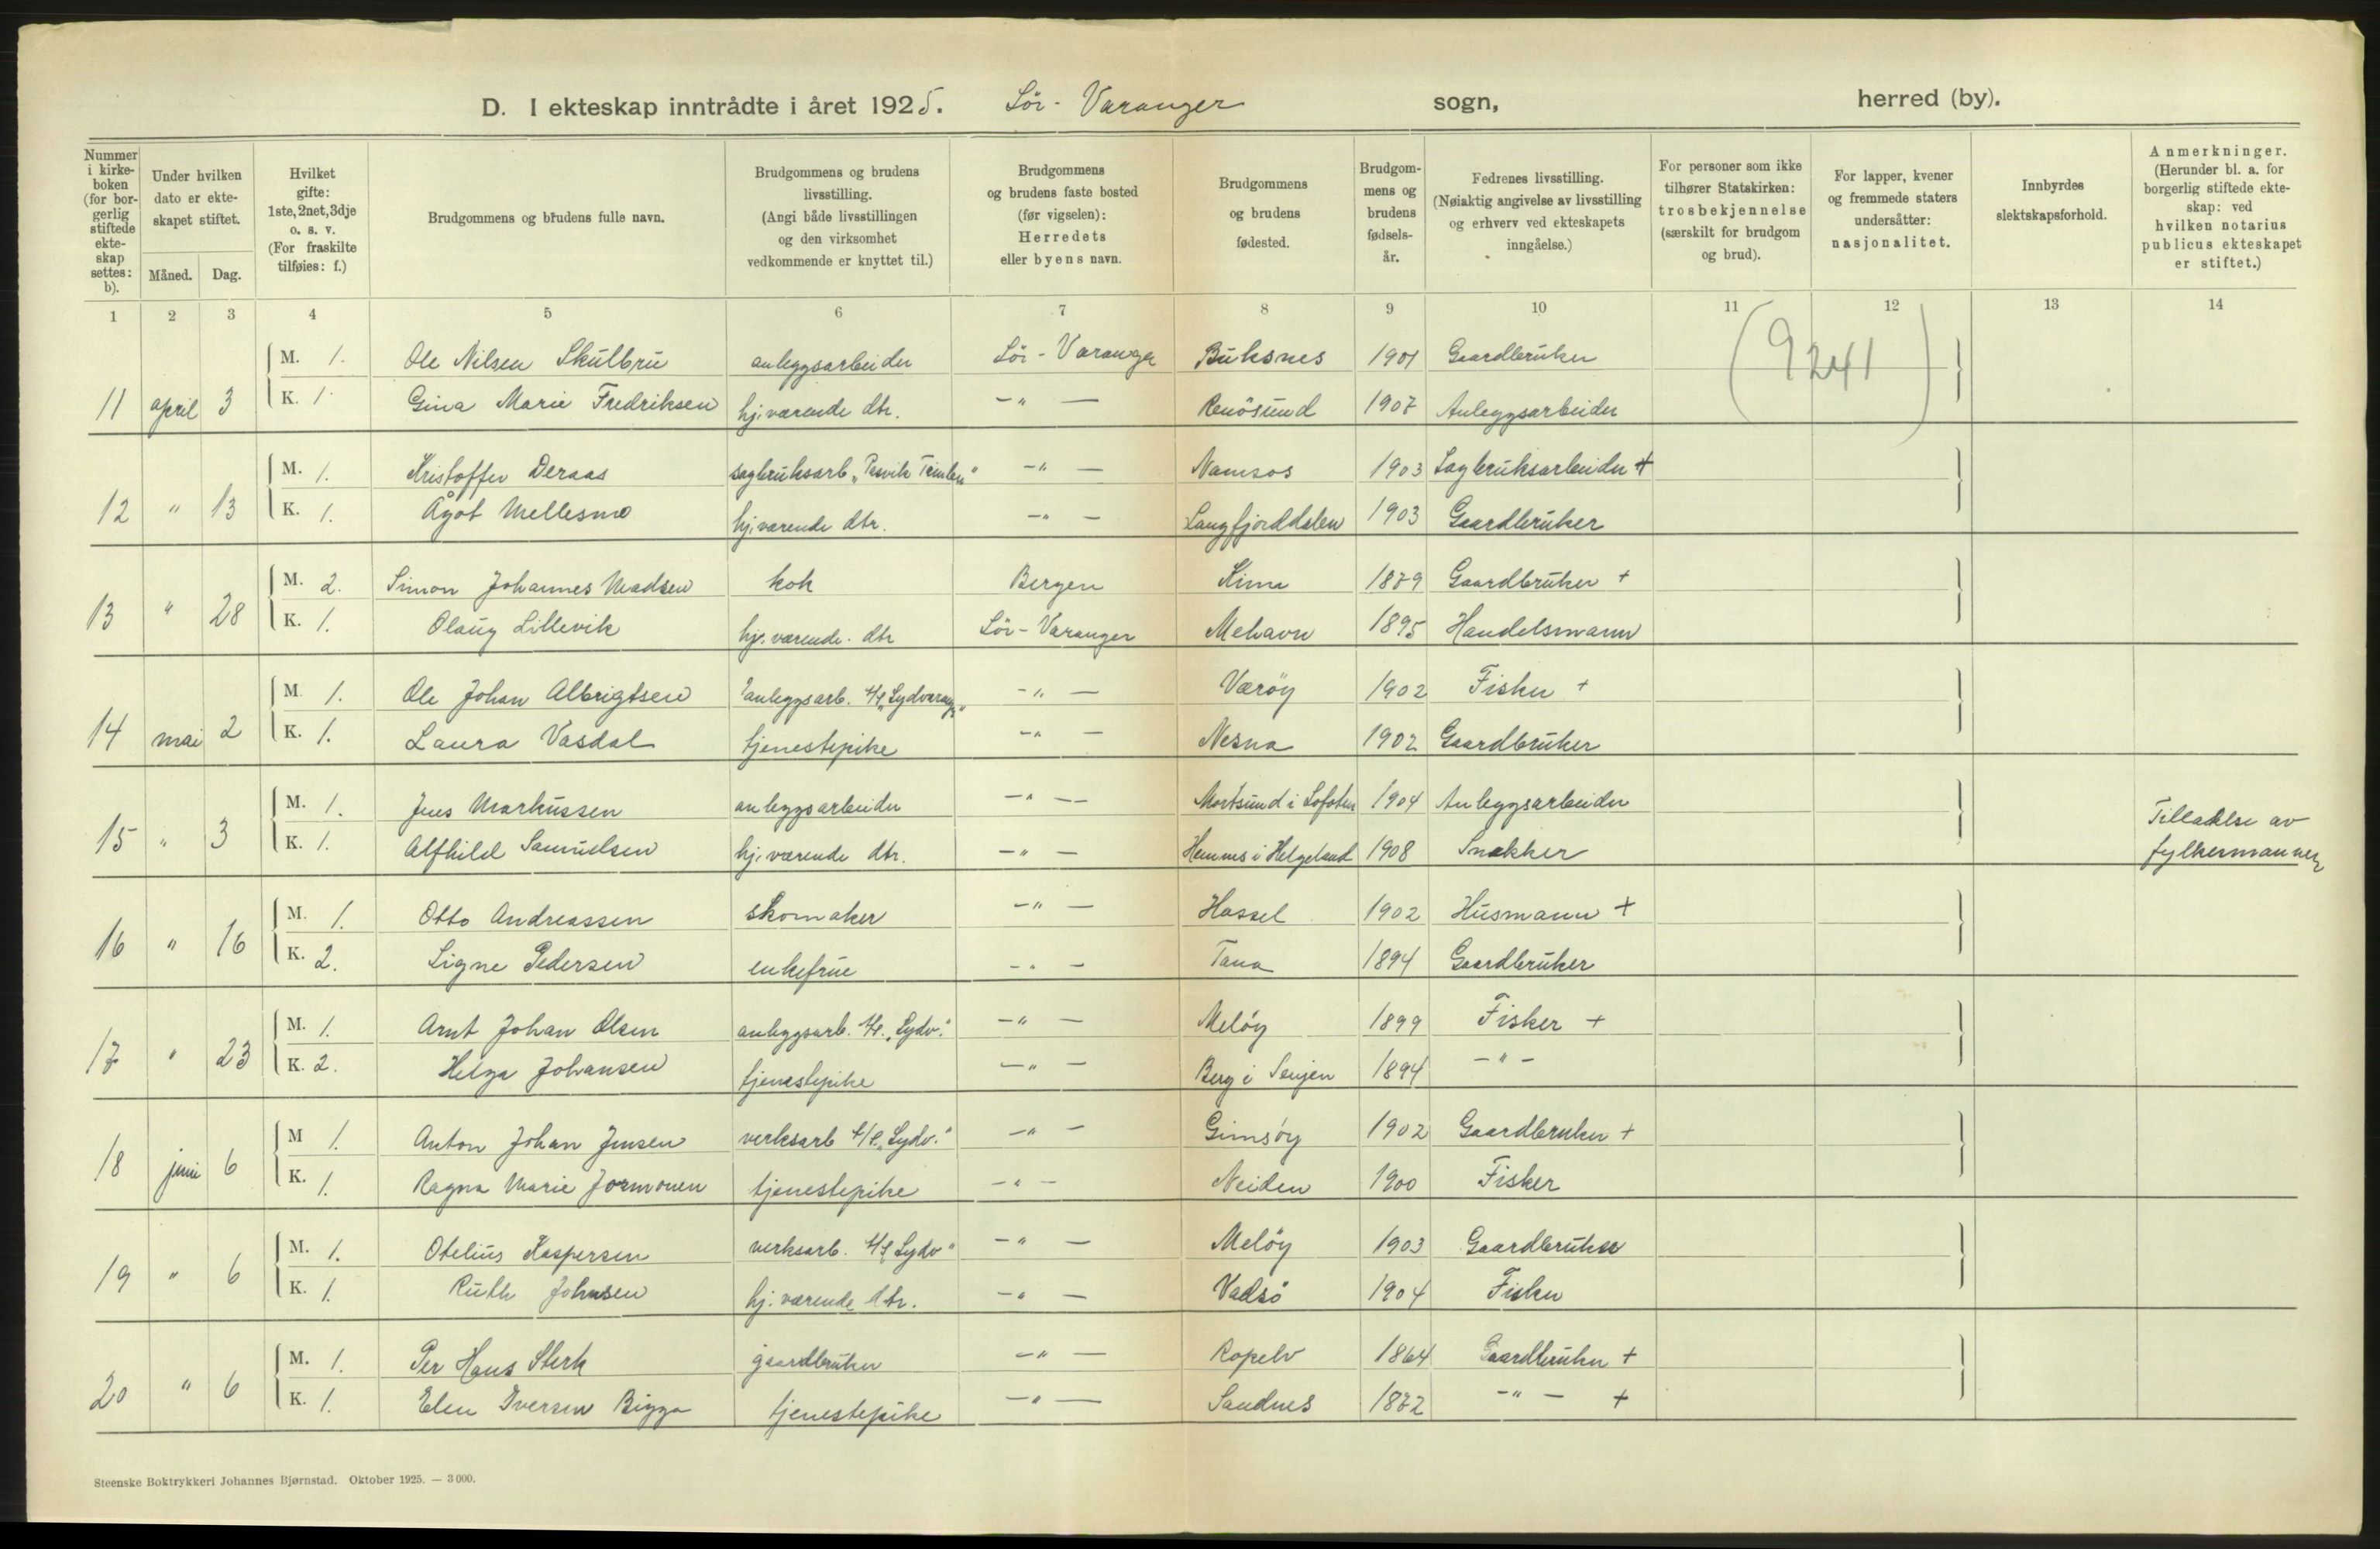 D. I ekteskap inntrådte i året 1925. Sör-Varanger sogn, herred (by).
Nummer i kirkeboken (for borgerlig stiftede ekteskap settes: b).
Under hvilken dato er ekteskapet stiftet.
Måned. Dag.
Hvilket gifte: 1ste, 2net, 3dje o. s. v. (For fraskilte tilføies: f.)
Brudgommens og brudens fulle navn.
Brudgommens og brudens livsstilling. (Angi både livsstillingen og den virksomhet vedkommende er knyttet til.)
Brudgommens og brudens faste bosted (før vigselen): Herredets eller byens navn.
Brudgommens og brudens fødested.
Brudgommens og brudens fødselsår.
Fedrenes livsstilling. (Nøiaktig angivelse av livsstilling og erhverv ved ekteskapets inngåelse.)
For personer som ikke tilhører Statskirken: trosbekjennelse (særskilt for brudgom og brud).
For lapper, kvener og fremmede staters undersåtter: nasjonalitet.
Innbyrdes slektskapsforhold.
Anmerkninger. (Herunder bl. a. for borgerlig stiftede ekteskap: ved hvilken notarius publicus ekteskapet er stiftet.)
1 2 3 4 5 6 7 8 9 10 11 12 13 14
(9241)
M. 1. Ole Nilsen Skulbru anleggsarbeider Sör-Varanger Buksnes 1901 Gaardbruker
11 april 3 K. 1. Gina Marie Fredriksen hj. værende dtr. -"- Renösund 1907 Anleggsarbeider
M. 1. Kristoffer Deraas sagbruksarb. „Pasvik Timber" -"- Namsos 1903 Sagbruksarbeider +
12 " 13 K. 1. Ågot Mellesmo hj. værende dtr. -"- Langfjorddalen 1903 Gaardbruker
M. 2. Simon Johannes Madsen kok Bergen Kinn 1879 Gaardbruker +
13 " 28 K. 1. Olaug Lillevik hj. værende dtr Sör-Varanger Mehavn 1895 Handelsmann
M. 1. Ole Johan Albrigtsen anleggsarb. A/S „Sydvaranger" -"- Væröy 1902 Fisker +
14 mai 2 K. 1. Laura Vasdal tjenestepike -"- Nesna 1902 Gaardbruker
M. 1. Jens Markussen anleggsarbeider -"- Mortsund i Lofoten 1904 Anleggsarbeider
15 " 3 K. 1. Alfhild Samuelsen hj. værende dtr. -"- Hemnes i Helgeland 1908 Snekker Tilladelse av fylkesmannen
M. 1. Otto Andreassen skomaker -"- Hassel 1902 Husmann +
16 " 16 K. 2. Signe Pedersen enkefrue -"- Tana 1894 Gaardbruker
M. 1. Arnt Johan Olsen anleggsarb. A/S. „Sydv." -"- Melöy 1899 Fisker +
17 " 23 K. 2. Helga Johansen tjenestepike -"- Berg i Senjen 1894 -"-
M 1. Anton Johan Jensen verksarb A/S. „Sydv." -"- Gimsöy 1902 Gaardbruker +
18 juni 6 K. 1. Ragna Marie Jormonen tjenestepike -"- Neiden 1900 Fisker
M. 1. Otelius Kaspersen verksarb. A/S „Sydv" -"- Melöy 1903 Gaardbruker
19 " 6 K. 1. Ruth Johnsen hj. værende dtr. -"- Vadsö 1904 Fisker
M. 1. Per Hans Sterk gaardbruker -"- Ropelv 1864 Gaardbruker +
20 " 6 K. 1. Elen Iversen Bigga tjenestepike -"- Sandnes 1872 -"- +
Steenske Boktrykkeri Johannes Bjørnstad. Oktober 1925. — 3 000.